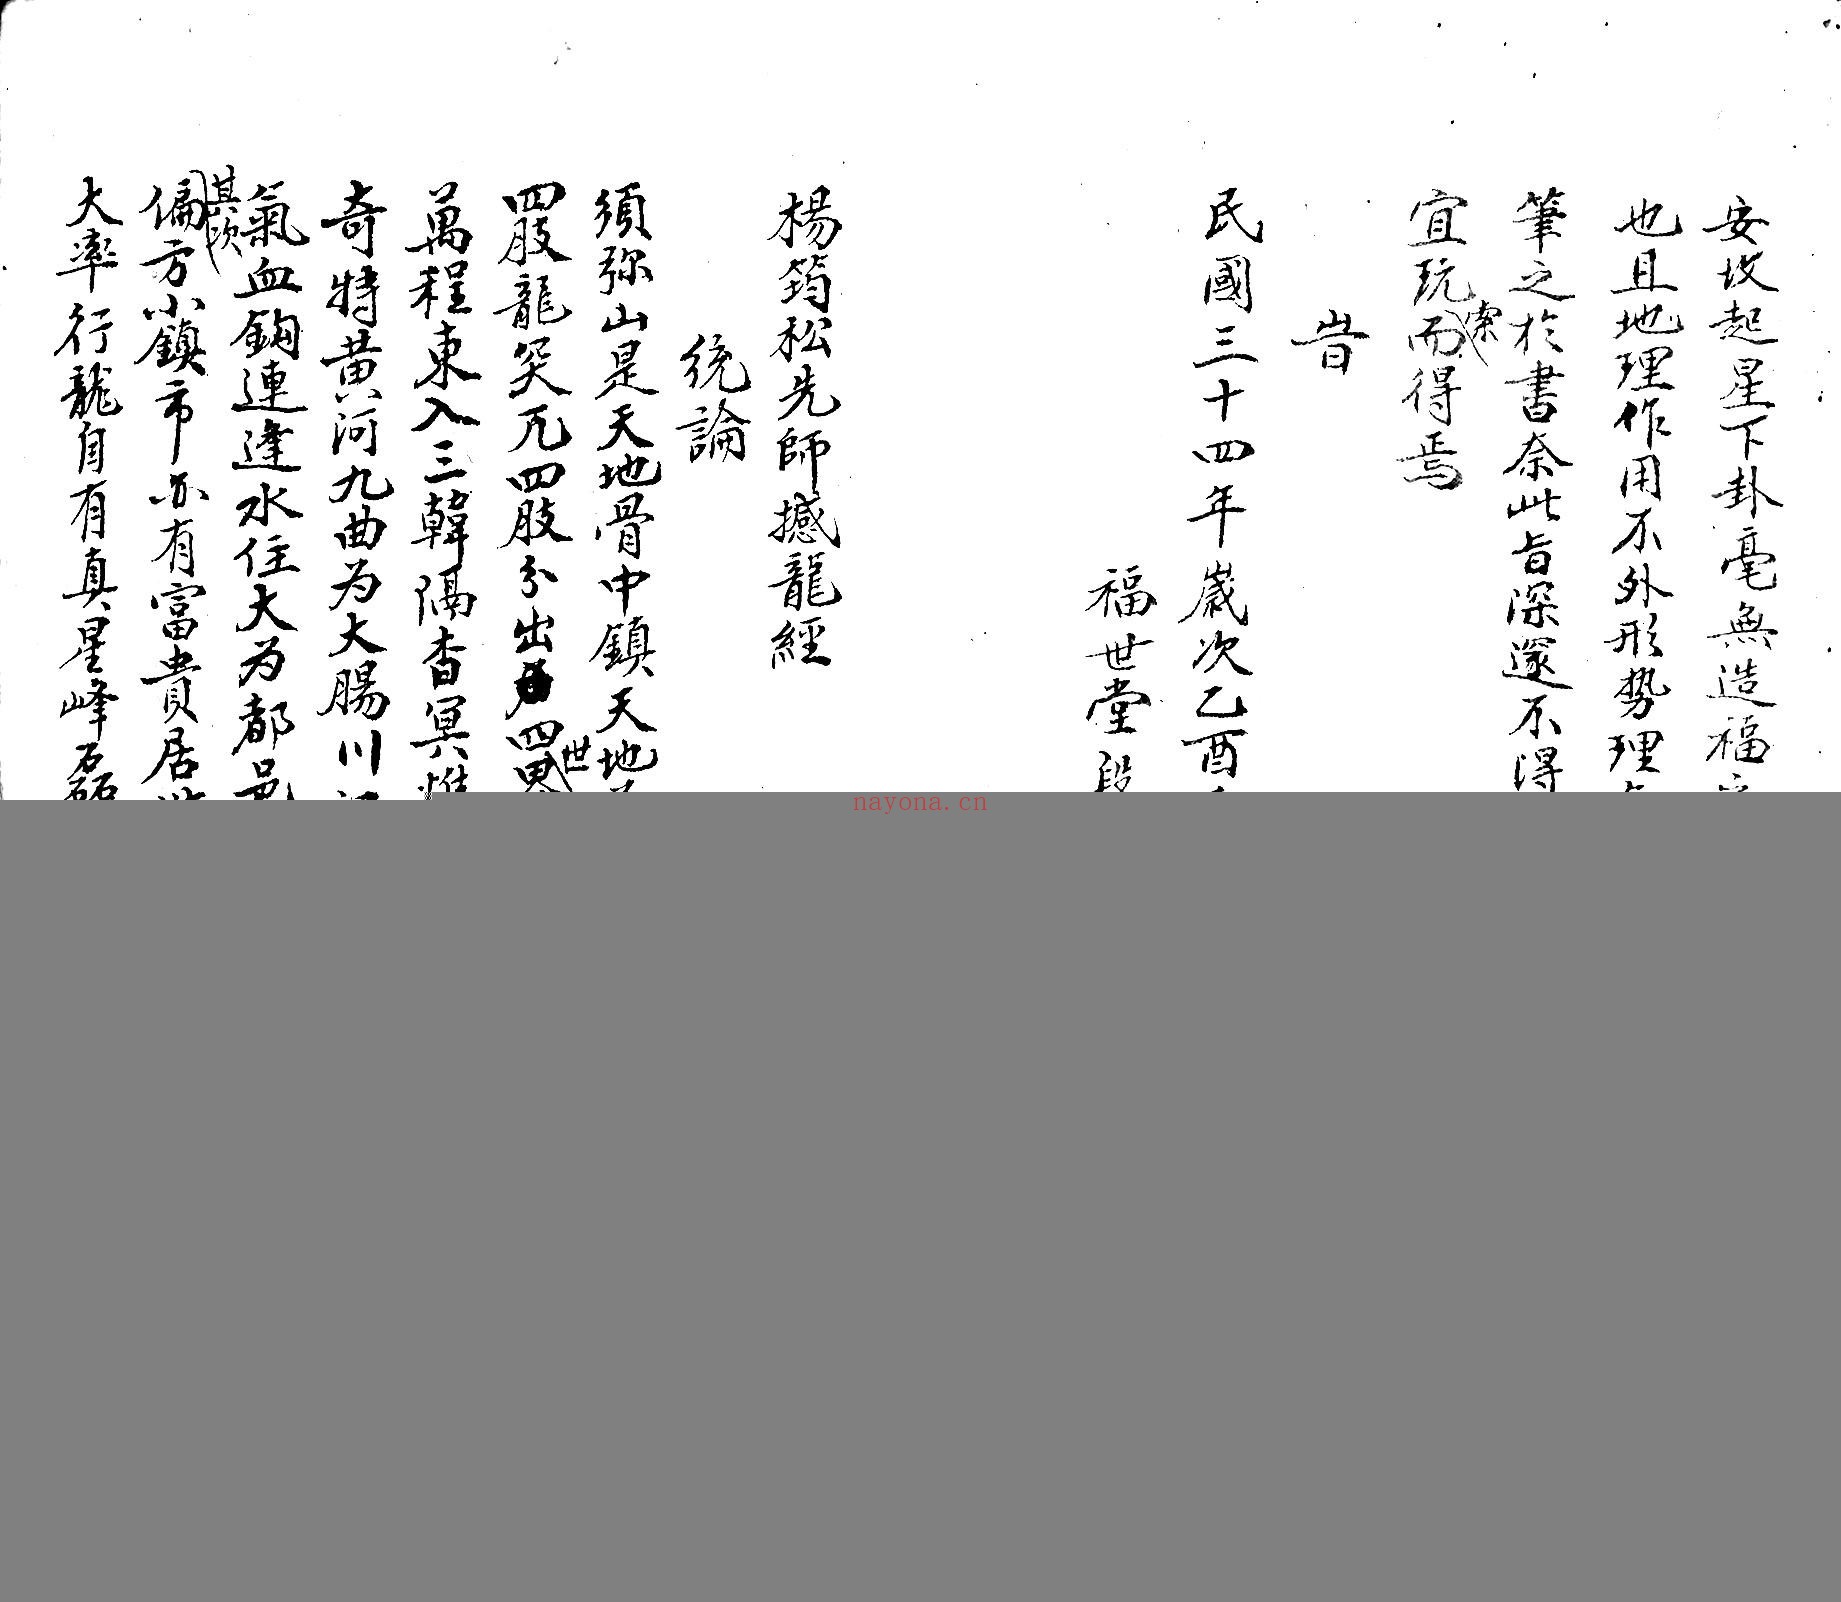 安坟起星下卦毫無造福
也且地理作用不外形势理
筆之於書奈此旨深邃不得
宜玩索而得焉
旹
民國三十四年歲次乙酉
福世堂段
楊筠松先師撼龍經
統論
須弥山是天地骨中鎮天地
四肢龍突兀四肢分出四世界
萬程東入三韓隔杳冥惟
奇特黄河九曲为大腸川江
氣血鈎連逢水住大为都邑
其次偏方小鎮市亦有富貴居
大率行龍自有真星峰磊
nayona.cn